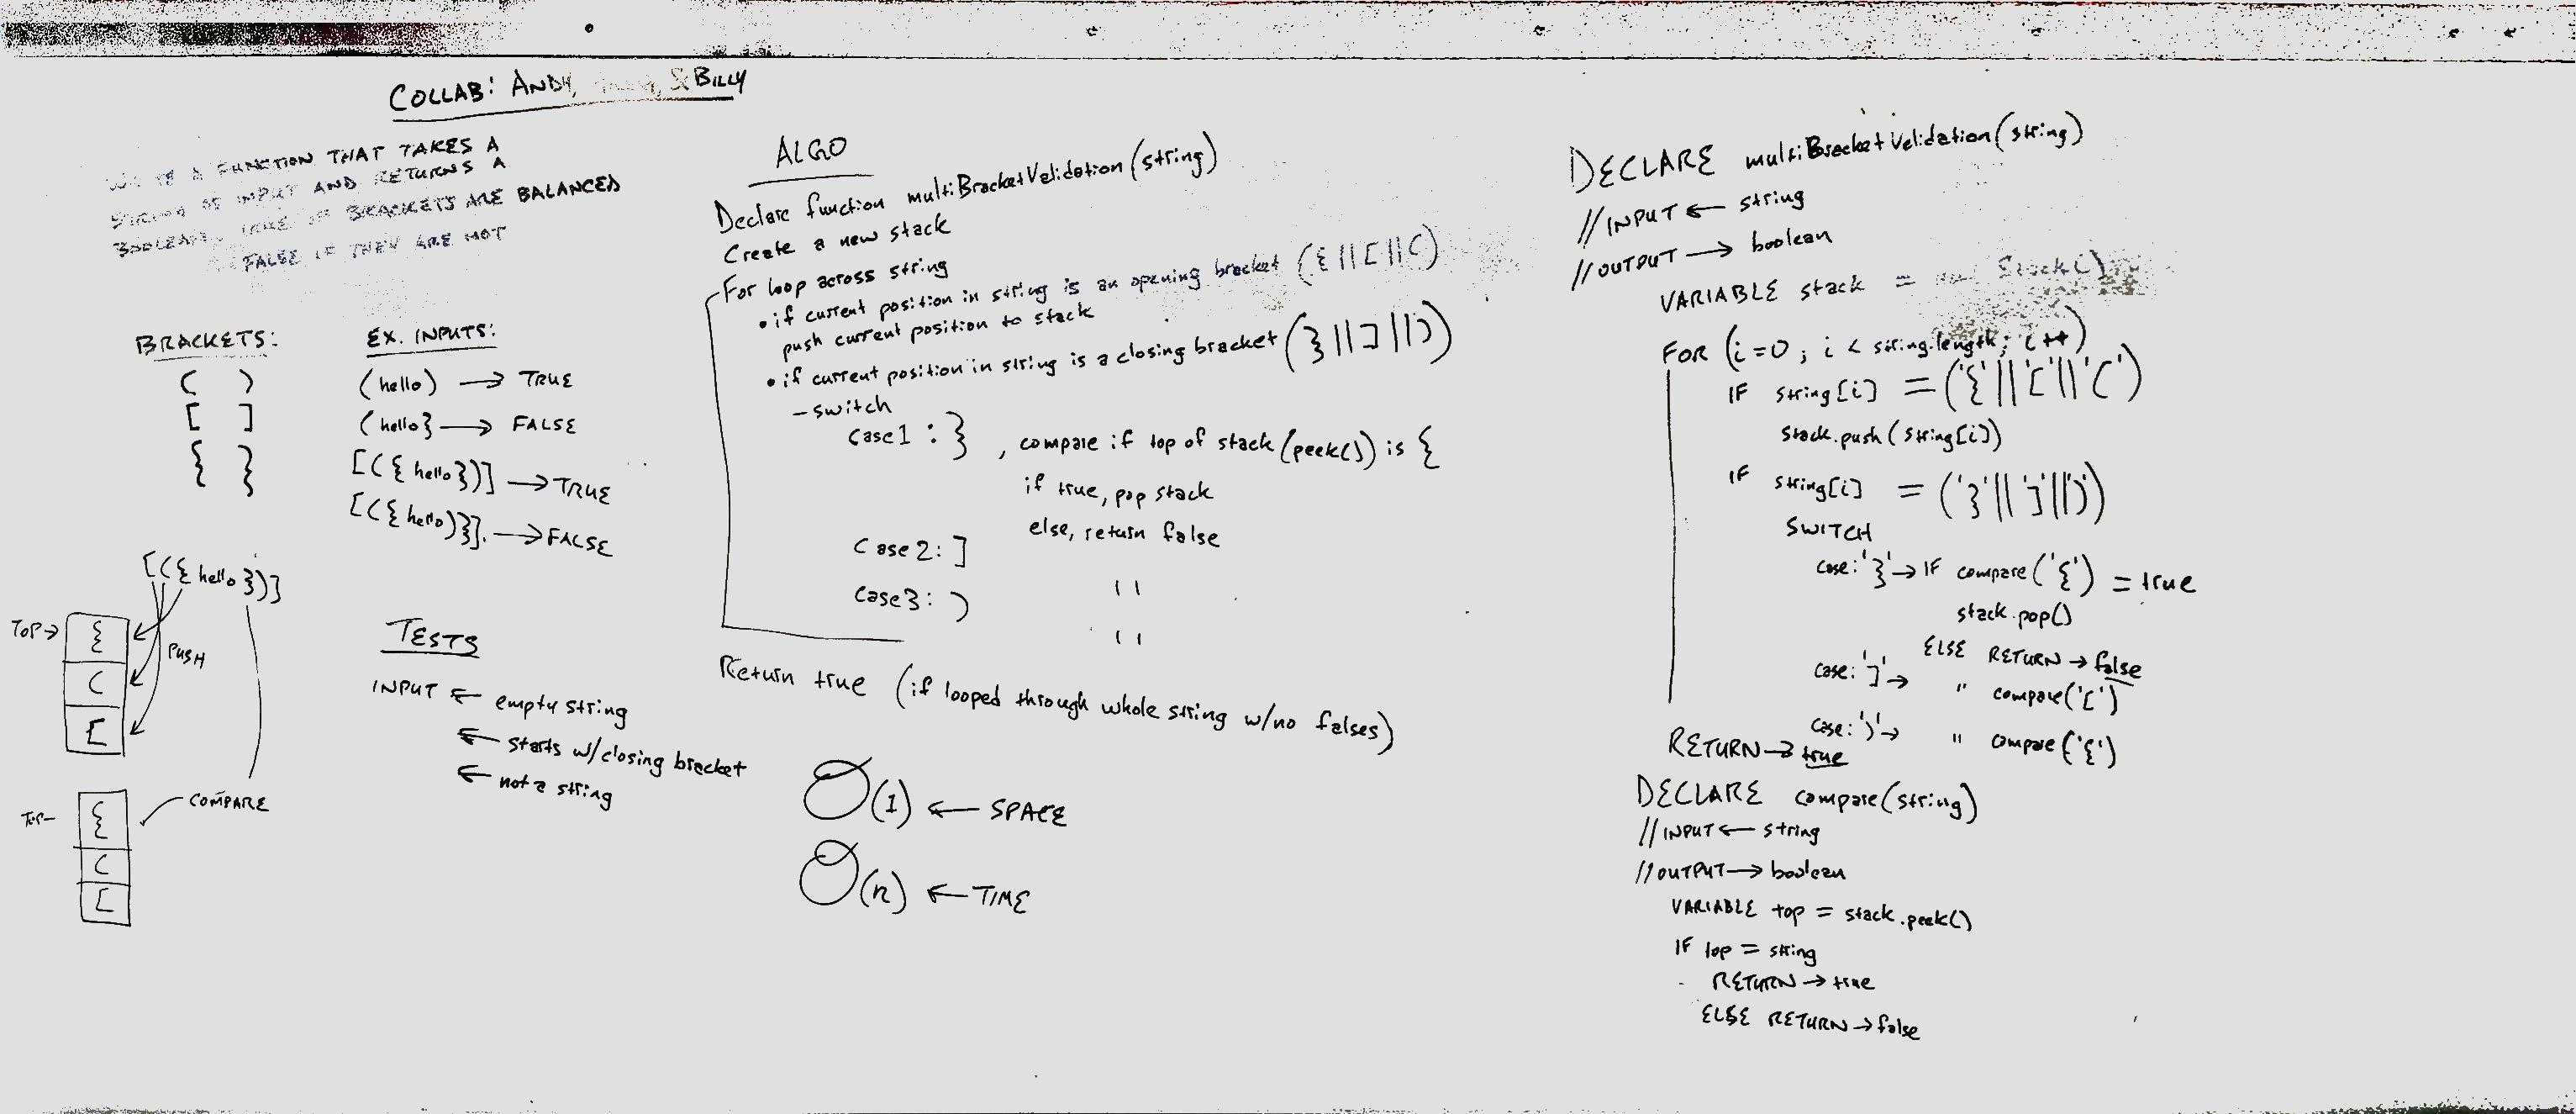 COLLAB: ANDY, & BILLY
WRITE A FUNCTION THAT TAKES A
STRING AS INPUT AND RETURNS A
BOOLEAN. TRUE IF BRACKETS ARE BALANCED
FALSE IF THEY ARE NOT
BRACKETS:
( )
[ ]
{ }
EX. INPUTS:
(hello) → TRUE
(hello} → FALSE
[({hello})] → TRUE
[({hello)}]. → FALSE
[({hello})]
TOP →
{
(
[
PUSH
TOP-
{
(
[
COMPARE
TESTS
INPUT ← empty string
← starts w/closing bracket
← not a string
ALGO
Declare function multiBracketValidation(string)
Create a new stack
For loop across string
• if current position in string is an opening bracket ({ || [ || ()
push current position to stack
• if current position in string is a closing bracket (} || ] || ))
- switch
case1 : } , compare if top of stack (peek()) is {
if true, pop stack
else, return false
Case2: ]
''
Case3: )
''
Return true (if looped through whole string w/no falses)
O(1) ← SPACE
O(n) ← TIME
DECLARE multiBracketValidation(string)
//INPUT ← string
//OUTPUT → boolean
VARIABLE stack = Stack()
FOR (i=0; i < string.length; i++)
IF string[i] = ('{' || '[' || '(')
stack.push(string[i])
IF string[i] = ('}' || ']' || ')')
SWITCH
case: '}' → IF compare('{') = true
stack.pop()
ELSE RETURN → false
case: ']' → " compare('[')
case: ')' → " compare('{')
RETURN → true
DECLARE compare(string)
//INPUT ← string
//OUTPUT → boolean
VARIABLE top = stack.peek()
IF top = string
RETURN → true
ELSE RETURN → false